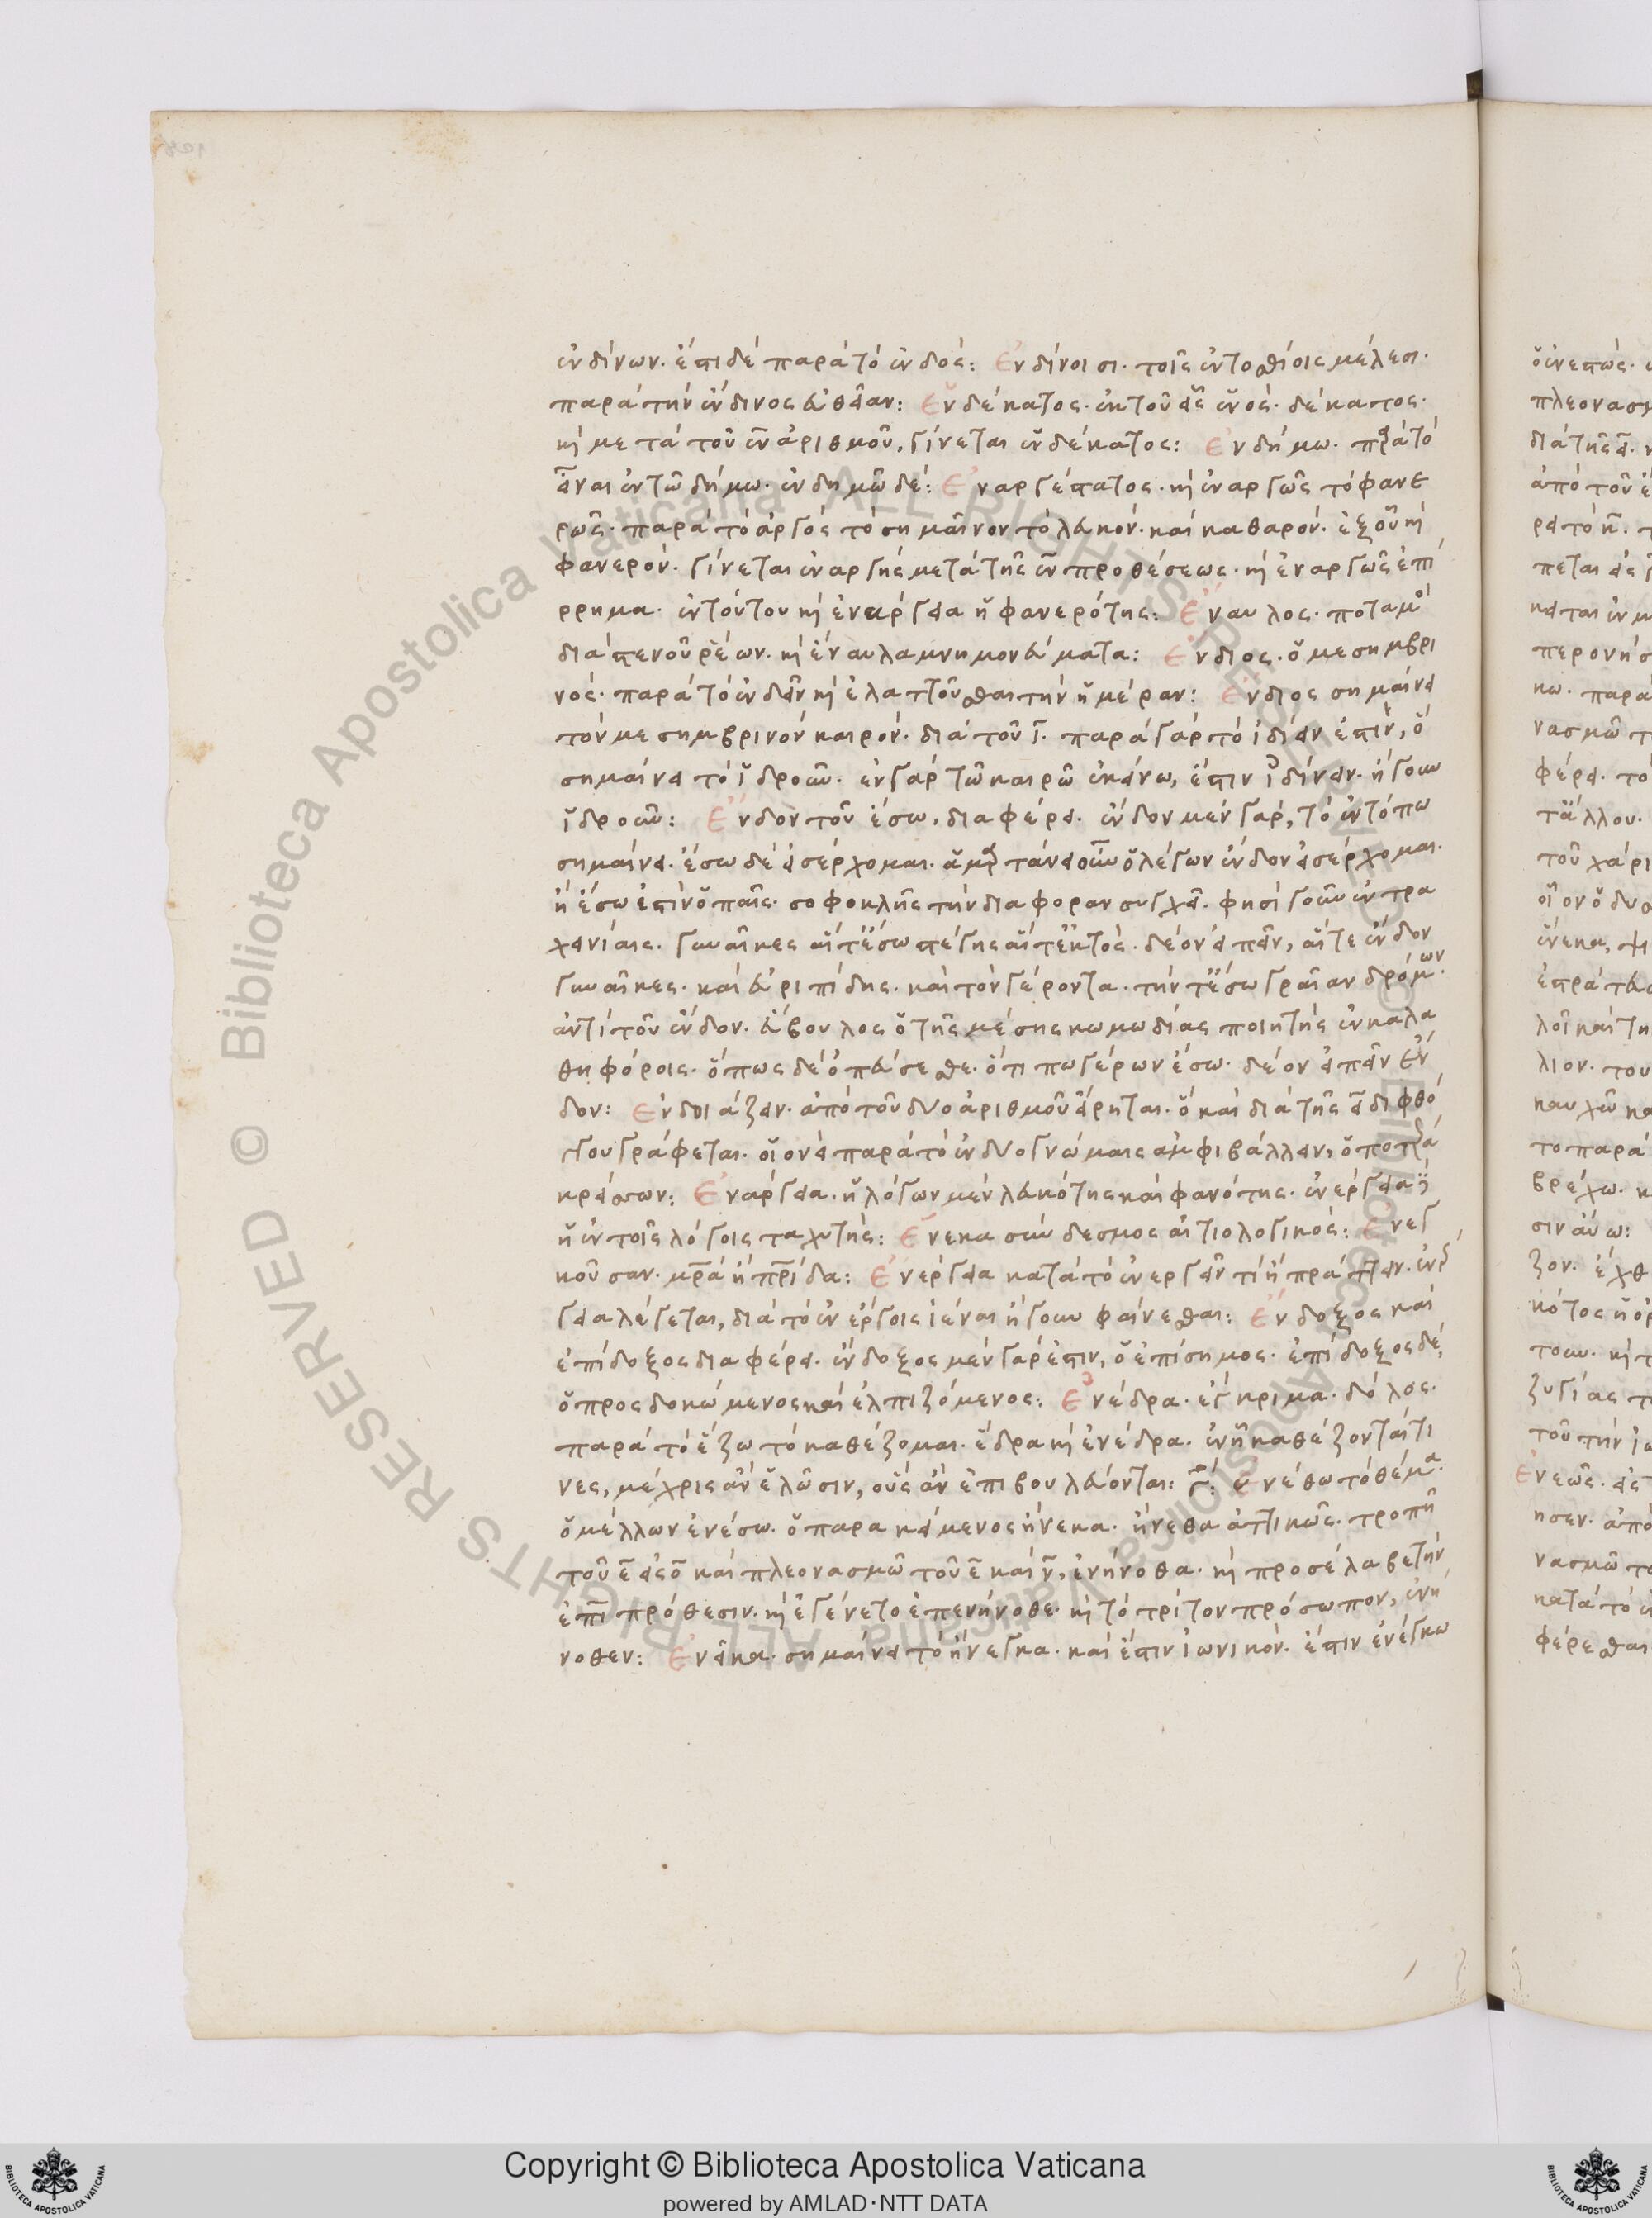 ἐνδίνων. ἔστι δὲ παρὰ τὸ ἐνδός: Ἐνδίνοισι. τοῖς ἐντοσθίοις μέλεσι.
παρὰ τὴν ἔνδινος εὐθεῖαν: Ἑνδέκατος. ἐκ τοῦ εἷς ἑνός. δέκατος.
κὶ μετὰ τοῦ ἓν ἀριθμοῦ, γίνεται ἑνδέκατος: Ἐνδήμω. πρὰ τὸ
εἶναι ἐν τῶ δήμω. ἐνδημῶ δέ: Ἐναργέστατος. κὶ ἐναργῶς τὸ φανε
ρῶς. παρὰ τὸ ἀργὸς τὸ σημαῖνον τὸ λευκόν. καὶ καθαρόν. ἐξ οὗ κὶ
φανερόν. γίνεται ἐναργὴς μετὰ τῆς ἐν προθέσεως. κὶ ἐναργῶς ἐπί
ρρημα. ἐντόντου κὶ ἐναάργεια ἡ φανερότης: Ἔναυλος. ποταμὸ
διὰ στενοῦ ῥέων. κὶ ἔναυλα μνημονεύματα: Ἔνδιος. ὁ μεσημβρι
νός. παρὰ τὸ ἐνδεῖν κὶ ἐλαττοῦσθαι τὴν ἡμέραν: Ἔνδιος σημαίνει
τὸν μεσημβρινὸν καιρόν. διὰ τοῦ ι. παρὰ γὰρ τὸ ἰδίειν ἐστιν, ὃ
σημαίνει τὸ ἱδροῦν. ἐν γὰρ τῶ καιρῶ ἐκείνω, ἔστιν ἰδίνειν. ἤγουν
ἱδροῦν: Ἔνδον τοῦ ἔσω, διαφέρει. ἔνδον μὲν γὰρ, τὸ ἐν τόπω
σημαίνει. ἔσω δὲ εἰσέρχομαι. ἁμαρτάνει οὖν ὁ λέγων ἔνδον εἰσέρχομαι.
ἢ ἔσω ἐστὶν ὁ παῖς. σοφοκλῆς τὴν διαφορὰν συγχεῖ. φησὶ γοῦν ἐν τρα
χινίαις. γυναῖκες αἵ τ' ἔσω στέγης αἵ τ' ἐκτός. δέον εἰπεῖν, αἵτε ἔνδον
γυναῖκες. καὶ εὐριπίδης. καὶ τὸν γέροντα. τήν τ' ἔσω γραῖαν δρόμων.
ἀντὶ τοῦ ἔνδον. εὔβουλος ὁ τῆς μέσης κωμωδίας ποιητὴς ἐν καλα
θηφόροις. ὅπως δὲ ὀπεύσεσθε. ὅτι πω γέρων ἔσω. δέον εἰπεῖν ἔν
δον: Ἐνδοιάζειν. ἀπὸ τοῦ δύο ἀριθμοῦ εἴρηται. ὃ καὶ διὰ τῆς ει διφθό
γγου γράφεται. οἱονεὶ παρὰ τὸ ἐν δυο γνώμαις ἀμφιβάλλειν, ὁποτέρα
κρείσσων: Ἐνάργεια. ἡ λόγων μὲν λευκότης καὶ φανότης. ἐνέργεια ἢ
ἡ ἐν τοῖς λόγοις ταχυτής: Ἕνεκα σύνδεσμος αἰτιολογικός: Ἐνεγ
κοῦσαν. μρα ἢ πρίδα: Ἐνέργεια κατὰ τὸ ἐνεργεῖν τί ἢ πράττειν. ἐνέρ
γεια λέγεται, διὰ τὸ ἐν ἔργοις ἰέναι ἤγουν φαίνεσθαι: Ἔνδοξος καὶ
ἐπίδοξος διαφέρει. ἔνδοξος μὲν γάρ ἐστιν, ὁ ἐπίσημος. ἐπίδοξος δέ,
ὁ προσδοκώμενος καὶ ἐλπιζόμενος: Ἐνέδρα. ἔγκριμα. δόλος.
παρὰ τὸ ἕζω τὸ καθέζομαι. ἕδρα κὶ ἐνέδρα. ἐν ἧ καθέζονταί τι
νες, μέχρις ἂν ἕλωσιν, οὓς ἂν ἐπιβουλεύονται: Ἐνέθω τὸ θέμα.
ὁ μέλλων ἐνέσω. ὁ παρακείμενος ἤνεκα. ἤνεθα ἀττικῶς. τροπῆ
τοῦ ε εἰς ο καὶ πλεονασμῶ τοῦ ε καὶ ν, ἐνήνοθα. κὶ προσέλαβε τὴν
ἐπι πρόθεσιν. κὶ ἐγένετο ἐπενήνοθε. κὶ τὸ τρίτον πρόσωπον, ἐνή
νοθεν: Ἔνεικα. σημαίνει τὸ ἤνεγκα. καὶ ἔστιν ἰωνικόν. ἔστιν ἐνέγκω
Copyright © Biblioteca Apostolica Vaticana
powered by AMLAD·NTT DATA
© Biblioteca Apostolica Vaticana ALL RIGHTS RESERVED